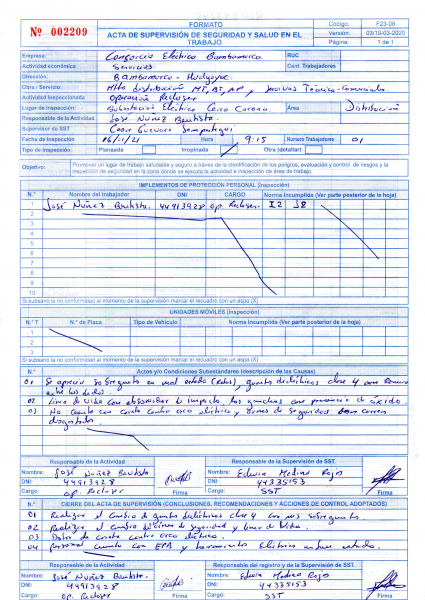 Nº 002209
FORMATO
ACTA DE SUPERVISIÓN DE SEGURIDAD Y SALUD EN EL TRABAJO
Código: F23-08
Versión: 03/10-03-2020
Página: 1 de 1
Empresa: Consorcio Eléctrico Bambamarca RUC
Actividad económica Servicios Cant. Trabajadores
Dirección: Bambamarca - Hualgayoc.
Obra / Servicio: Mtto distribución MT, BT, AP y Servicios Técnico-Comerciales
Actividad Inspeccionada Operación Recloser
Lugar de Inspección: Subestación Eléctrica Cerro Corona. Área Distribución
Responsable de la Actividad José Nuñez Bautista.
Supervisor de SST Cesar Guevara
Fecha de Inspección 16/11/21 Hora 9:15 Numero Trabajadores 01
Tipo de Inspección: Planeada Inopinada Otra (detallar)
Objetivo: Promover un lugar de trabajo saludable y seguro a través de la identificación de los peligros, evaluación y control de riesgos y la inspección de seguridad en la zona donde se ejecuta la actividad e inspección de área de trabajo.
IMPLEMENTOS DE PROTECCIÓN PERSONAL (Inspección)
N.° Nombre del trabajador DNI CARGO Norma Incumplida (Ver parte posterior de la hoja)
1 José Nuñez Bautista. 44913928 op. Recloser. I2 I8
2
3
4
5
6
7
8
9
10
Si subsanó la no conformidad al momento de la supervisión marcar el recuadro con un aspa (X)
UNIDADES MÓVILES (Inspección)
N.° T N.° de Placa Tipo de Vehículo Norma Incumplida (Ver parte posterior de la hoja)
1
2
3
Si subsanó la no conformidad al momento de la supervisión marcar el recuadro con un aspa (X)
N.° Actos y/o Condiciones Subestándares (descripción de las Causas)
01 Se aprecia sobreguante en mal estado (Rotos), guantes dieléctricos clase 4 con
entre los dedos.
02 Línea de vida con absorvedor de impacto, los ganchos con presencia de óxido
03 No cuenta con careta contra arco eléctrico y arnes de seguridad con correas
desgastadas
Responsable de la Actividad Responsable de la Supervisión de SST.
Nombre: José Nuñez Bautista Nombre: Edwin Medina Rojas
DNI: 44913928 DNI: 44335153
Cargo: op. Recloser Firma Cargo: SST Firma
N.° CIERRE DEL ACTA DE SUPERVISIÓN (CONCLUSIONES, RECOMENDACIONES Y ACCIONES DE CONTROL ADOPTADOS)
01 Realizar el cambio de guantes dieléctricos clase 4 con sus sobreguantes.
02 Realizar el cambio de arnes de seguridad y línea de vida.
03 Dotar de careta contra arco eléctrico.
04 Personal cuenta con EPP y herramientas Eléctricas en buen estado.
Responsable de la Actividad Responsable del registro y de la Supervisión de SST.
Nombre: José Nuñez Bautista. Nombre: Edwin Medina Rojas
DNI: 44913928 DNI: 44335153
Cargo: op. Recloser Firma Cargo: SST Firma